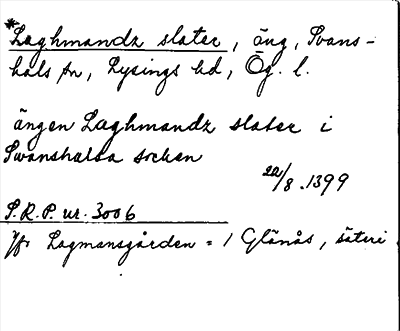 *Laghmandz slater, äng, Svans-
hals sn, Lysings hd, Ög. l.
ängen Laghmandz slater i
Swanshalsa socken
22/8 . 1399
S.R.P. nr. 3006
Jfr Lagmansgården = / Glänås, säteri.